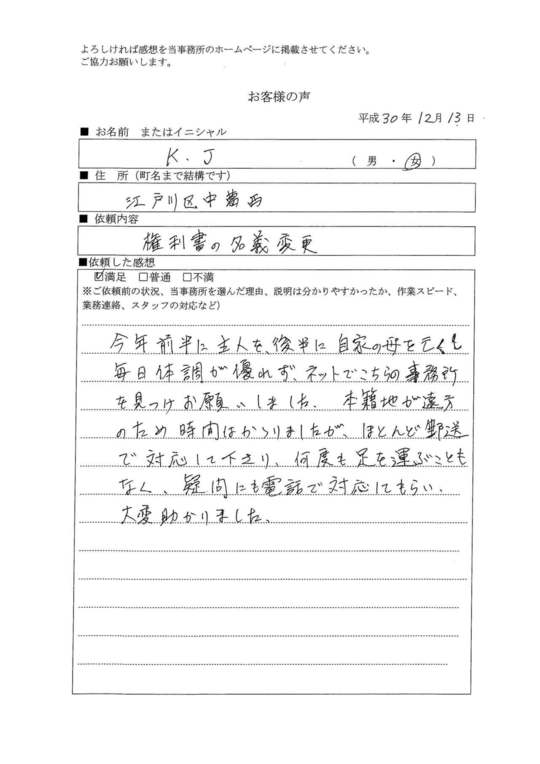 よろしければ感想を当事務所のホームページに掲載させてください。
ご協力お願いします。
お客様の声
平成30年12月13日
■ お名前 またはイニシャル
K.J (男・女)
■ 住 所(町名まで結構です)
江戸川区中葛西
■ 依頼内容
権利書の名義変更
■依頼した感想
☑満足 □普通 □不満
※ご依頼前の状況、当事務所を選んだ理由、説明は分かりやすかったか、作業スピード、
業務連絡、スタッフの対応など)
今年前半に主人を、後半に自家の母を亡くし
毎日体調が優れず、ネットでこちらの事務所
を見つけお願いしました。本籍地が遠方
のため時間はかかりましたが、ほとんど郵送
で対応して下さり、何度も足を運ぶことも
なく、疑問にも電話で対応してもらい、
大変助かりました。